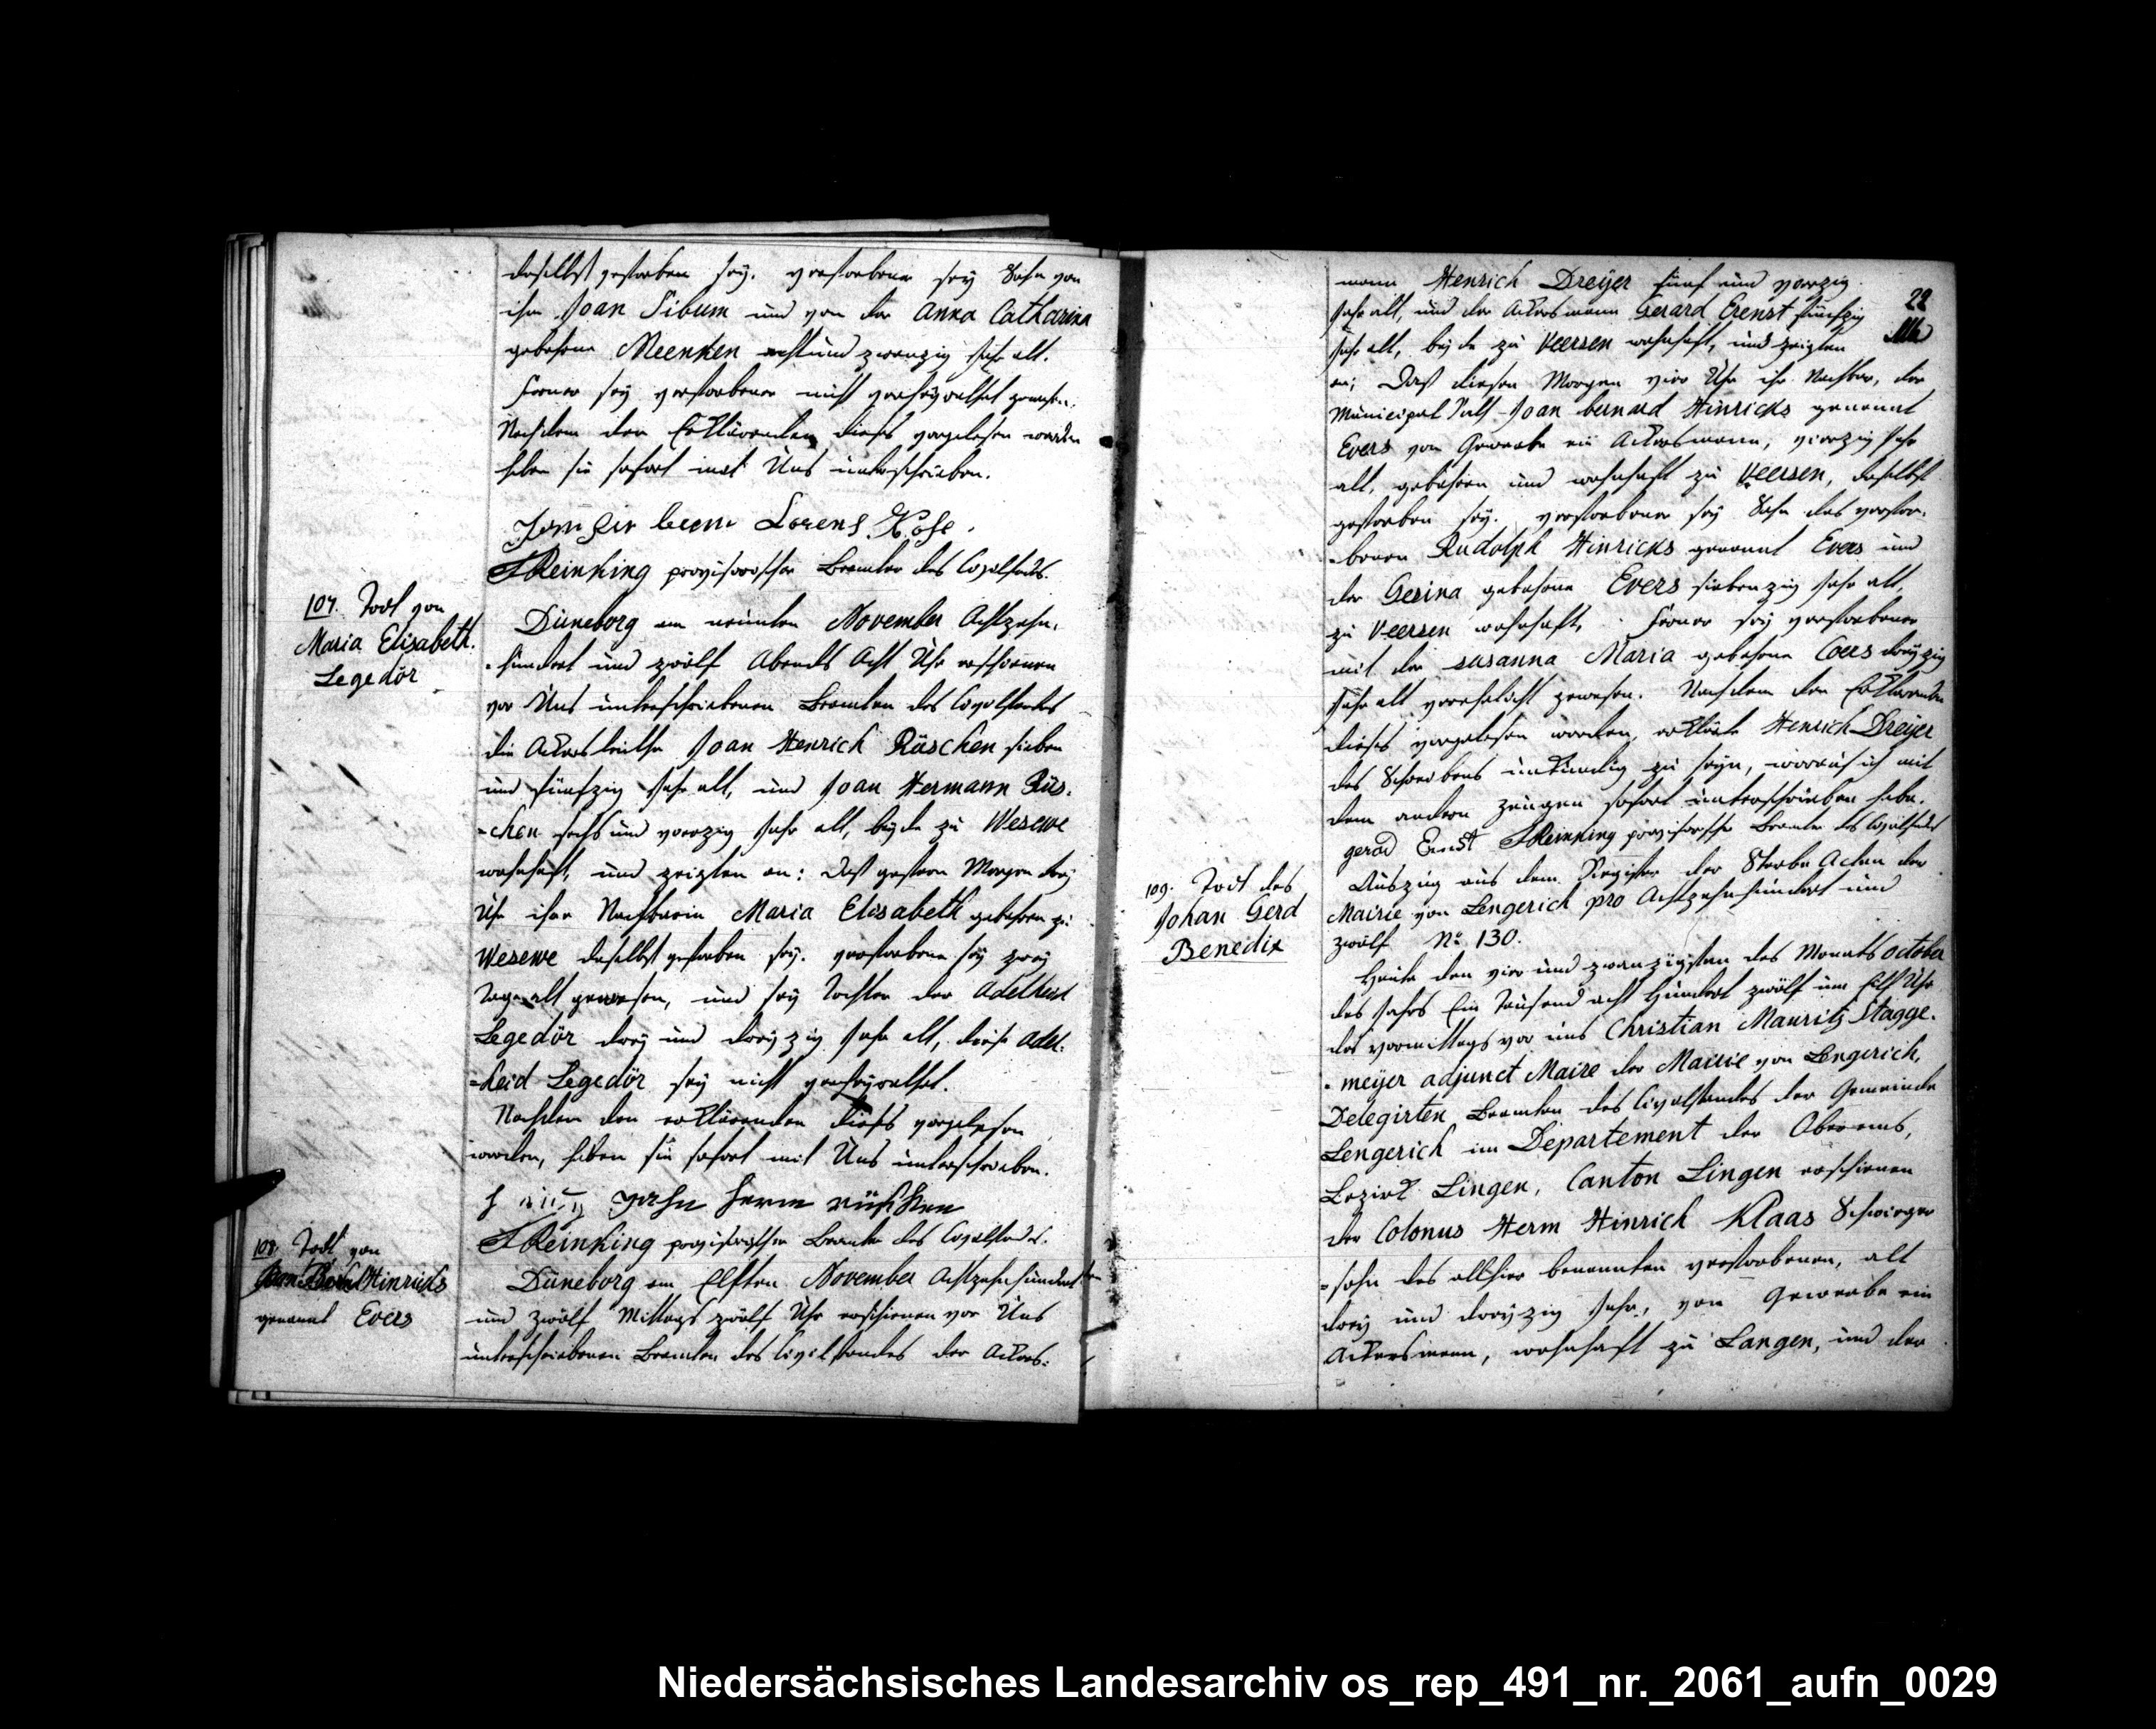 daselbst gestorben sey. verstorbener sey Sohn von
ihm Joan Sibum und von der Anna Catharina
gebohrne Meenken achtund zwanzig Jahr alt.
Ferner sey verstorbener nicht verheyrathet gewesen.
Nachdem den Erklärenden dieses vorgelesen worden
haben sie sofort mit Uns unterschrieben.
Lorens
FReinking provisorischer Beamter des Civilstands.
107. Todt von
Maria Elisabeth
Legedör
Düneborg am neunten November Achtzehn-
-hundert und zwölf Abends Acht Uhr erschienen
vor Uns unterschriebenen Beamten des Civilstandes
die Ackersleuthe Joan Henrich Rüschen sieben
und fünfzig Jahr alt, und Joan Hermann Rüs-
-chen sechs und vierzig Jahr alt, beyde zu Wesewe
wohnhaft, und zeigten an: Daß gestern Morgen drey
Uhr ihre Nachbarin Maria Elisabeth gebohren zu
Wesewe daselbst gestorben sey. verstorbene sey zwey
Tage alt gewesen, und sey Tochter der Adelheid
Legedör drey und dreyzig Jahr alt, diese Adel-
-heid Legedör sey nicht verheyrathet.
Nachdem den erklärenden dieses vorgelesen
worden, haben sie sofort mit Uns unterschrieben.
herm rüschen
FReinking provisorischer Beamter des Civilstandes.
108. Todt von
Hinricks
genannt Evers
Düneborg am Elften November Achtzehnhundert
und zwölf Mittags zwölf Uhr erschienen vor Uns
unterschriebenen Beamten des Civilstandes der Ackers-
22
mann Henrich Dreyer fünf und vierzig
Jahr alt, und der Ackersmann Gerard Erenst fünfzig
Jahr alt, beyde zu Veersen wohnhaft, und zeigten
an; Daß diesen Morgen vier Uhr ihr Nachbar, der
Municipal Rath Joan bernard Hinricks genannt
Evers von Gewerbe ein Ackersmann, vierzig Jahr
alt, gebohren und wohnhaft zu Veersen, daselbst
gestorben sey. verstorbener sey Sohn des verstor-
-benen Rudolph Hinricks genannt Evers und
der Gesina gebohrne Evers siebenzig Jahr alt,
zu Veersen wohnhaft, ferner sey verstorbener
mit der susanna Maria gebohrne Coers dreyzig
Jahr alt verehelicht gewesen. Nachdem den Erklärenden
dieses vorgelesen worden, erklärte Henrich Dreyer
des Schreibens unkundig zu seyn, worauf ich mit
dem andern zeugen sofort unterschrieben habe.
gerad Ernst FReinking provisorischer Beamter des Civilstandes
109. Todt des
Johan Gerd
Benedix
Auszug aus dem Register der Sterbe Acten der
Mairie von Lengerich pro Achtzehnhundert und
zwölf No 130.
Heute den vier und zwanzigsten des Monats october
des Jahrs Ein Tausend acht Hundert zwölf um Eilf Uhr
des vormittags vor uns Christian Mauritz Stagge-
-meyer adjunct Maire der Mairie von Lengerich,
Delegirten Beamten des Civilstandes der Gemeinde
Lengerich im Departement der Oberems,
Bezirk Lingen, Canton Lingen erschienen
der Colonus Herm Hinrich Klaas Schwieger
-sohn des allhier benannten verstorbenen, alt
drey und dreyzig Jahr, von Gewerbe ein
Ackersmann, wohnhaft zu Langen, und der
Niedersächsisches Landesarchiv os_rep_491_nr._2061_aufn_0029